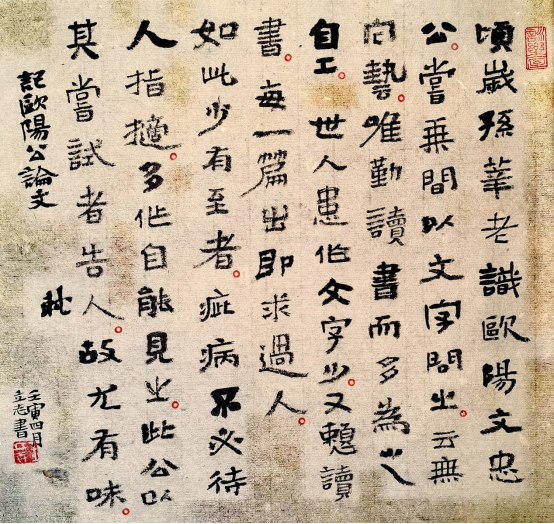 頃歲孫莘老識歐陽文忠
公。嘗乘間以文字問之。云無
藝。唯勤讀書而多為之
自工。世人患作文字少。又懶讀
書。每一篇出即求過人。
如此少有至者。疵病不必待
人指擿。多作自能見之。此公以
其嘗試者告人。故尤有味。
記歐陽公論文
軾
壬寅四月
立志書